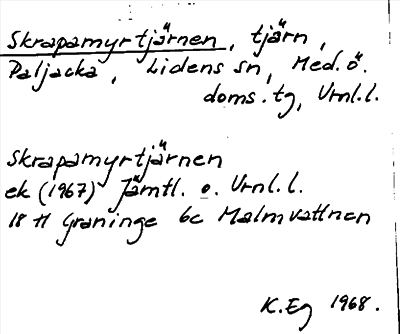 Skrapamyrtjärnen, tjärn,
Paljacka, Lidens sn, Med.ö.
doms.tg, Vrnl.l.
Skrapamyrtjärnen
ek (1967) Jämtl. o. Vrnl.l.
18 H Graninge 6c Malmvattnen
K.Eg 1968.